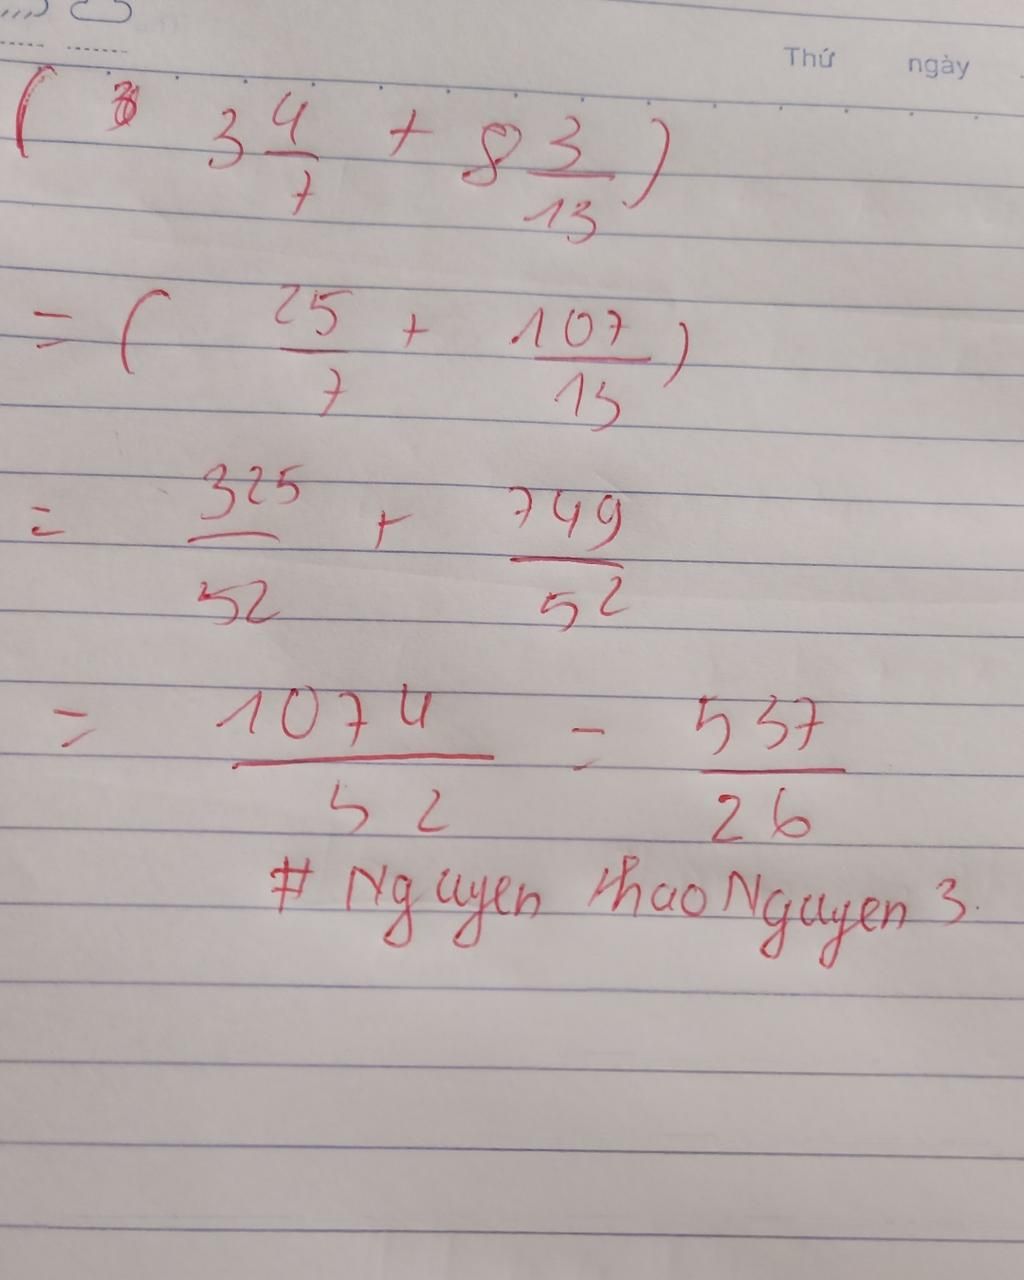 Thứ ngày
( 3 3 4/7 + 8 3/13 )
= ( 25/7 + 107/13 )
= 325/52 + 749/52
= 1074/52 = 537/26
# Nguyen thao Nguyen 3.